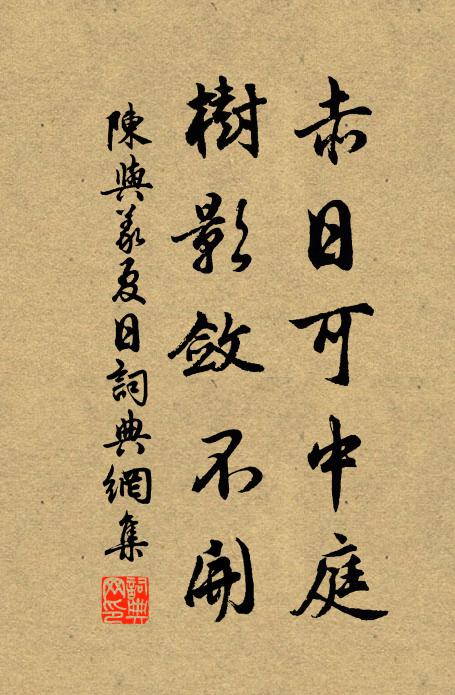 赤日可中庭
樹影斂不開
陳與義夏日詞典網集
詞典網印